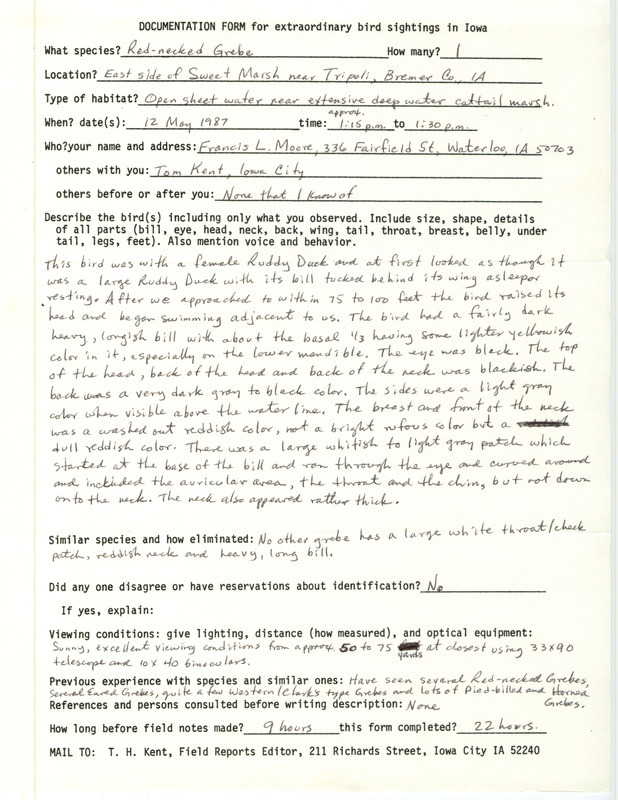 DOCUMENTATION FORM for extraordinary bird sightings in Iowa
What species? Red-necked Grebe How many? 1
Location? East side of Sweet Marsh near Tripoli, Bremer Co., IA
Type of habitat? Open sheet water near extensive deep water cattail marsh.
approx.
When? date(s): 12 May 1987 time: 1:15 p.m. to 1:30 p.m.
Who?your name and address: Francis L. Moore, 336 Fairfield St, Waterloo, IA 50703
others with you: Tom Kent, Iowa City
others before or after you: None that I know of
Describe the bird(s) including only what you observed. Include size, shape, details
of all parts (bill, eye, head, neck, back, wing, tail, throat, breast, belly, under
tail, legs, feet). Also mention voice and behavior.
This bird was with a female Ruddy Duck and at first looked as though it
was a large Ruddy Duck with its bill tucked behind its wing asleep or
resting. After we approached to within 75 to 100 feet the bird raised its
head and began swimming adjacent to us. The bird had a fairly dark
heavy, longish bill with about the basal 1/3 having some lighter yellowish
color in it, especially on the lower mandible. The eye was black. The top
of the head, back of the head and back of the neck was blackish. The
back was a very dark gray to black color. The sides were a light gray
color when visible above the water line. The breast and front of the neck
was a washed out reddish color, not a bright rufous color but a
dull reddish color. There was a large whitish to light gray patch which
started at the base of the bill and ran through the eye and curved around
and included the auricular area, the throat and the chin, but not down
onto the neck. The neck also appeared rather thick.
Similar species and how eliminated: No other grebe has a large white throat/cheek
patch, reddish neck and heavy, long bill.
Did any one disagree or have reservations about identification? No
If yes, explain:
Viewing conditions: give lighting, distance (how measured), and optical equipment:
Sunny, excellent viewing conditions from approx. 50 to 75 yards at closest using 33x90
telescope and 10x40 binoculars.
Previous experience with species and similar ones: Have seen several Red-necked Grebes,
Several Eared Grebes, quite a few Western/Clark's type Grebes and lots of Pied-billed and Horned
Grebes.
References and persons consulted before writing description: None
How long before field notes made? 9 hours this form completed? 22 hours.
MAIL TO: T. H. Kent, Field Reports Editor, 211 Richards Street, Iowa City IA 52240